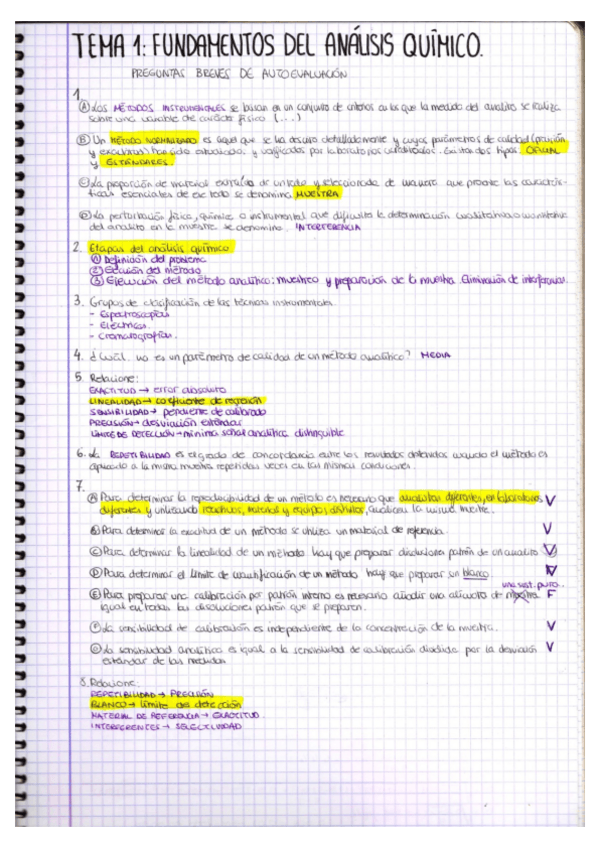 TEMA 1: FUNDAMENTOS DEL ANÁLISIS QUÍMICO.
PREGUNTAS BREVES DE AUTOEVALUACIÓN
1.
A) Los MÉTODOS INSTRUMENTALES se basan en un conjunto de criterios en los que la medida del analito se realiza
sobre una variable de carácter físico (...)
B) Un MÉTODO NORMALIZADO es aquel que se ha descrito detalladamente y cuyos parámetros de calidad (precisión
y exactitud) han sido estudiados y verificados por laboratorios acreditados. Existen dos tipos: OFICIAL
y ESTÁNDARES.
C) La proporción de material extraída de un todo y seleccionada de manera que presente las caracterís-
ticas esenciales de ese todo se denomina MUESTRA
D) La perturbación física, química o instrumental que dificulta la determinación cualitativa o cuantitativa
del analito en la muestra se denomina. INTERFERENCIA
2. Etapas del análisis químico.
① Definición del problema
② Elección del método
③ Ejecución del método analítico: muestreo y preparación de la muestra. Eliminación de interferencias.
3. Grupos de clasificación de las técnicas instrumentales.
- Espectroscopias
- Eléctricas.
- Cromatografías.
4. ¿Cuál no es un parámetro de calidad de un método analítico? MEDIA
5. Relacione:
EXACTITUD → error absoluto
LINEALIDAD → coeficiente de regresión
SENSIBILIDAD → pendiente de calibrado
PRECISIÓN → desviación estándar
LÍMITE DE DETECCIÓN → mínima señal analítica distinguible
6. La REPETIBILIDAD es el grado de concordancia entre los resultados obtenidos cuando el método es
aplicado a la misma muestra repetidas veces en las mismas condiciones.
7.
A) Para determinar la reproducibilidad de un método es necesario que analistas diferentes, en laboratorios V
diferentes y utilizando reactivos, material y equipos distintos, analicen la misma muestra.
B) Para determinar la exactitud de un método se utiliza un material de referencia. V
C) Para determinar la linealidad de un método hay que preparar disoluciones patrón de un analito V
D) Para determinar el límite de cuantificación de un método hay que preparar un blanco V
una sust. pura.
E) Para preparar una calibración por patrón interno es necesario añadir una alícuota de muestra F
igual en todas las disoluciones patrón que se preparen.
F) La sensibilidad de calibración es independiente de la concentración de la muestra. V
G) La sensibilidad analítica es igual a la sensibilidad de calibración dividida por la desviación V
estándar de las medidas
8. Relacione:
REPETIBILIDAD → PRECISIÓN
BLANCO → límite de detección
MATERIAL DE REFERENCIA → EXACTITUD.
INTERFERENTES → SELECTIVIDAD